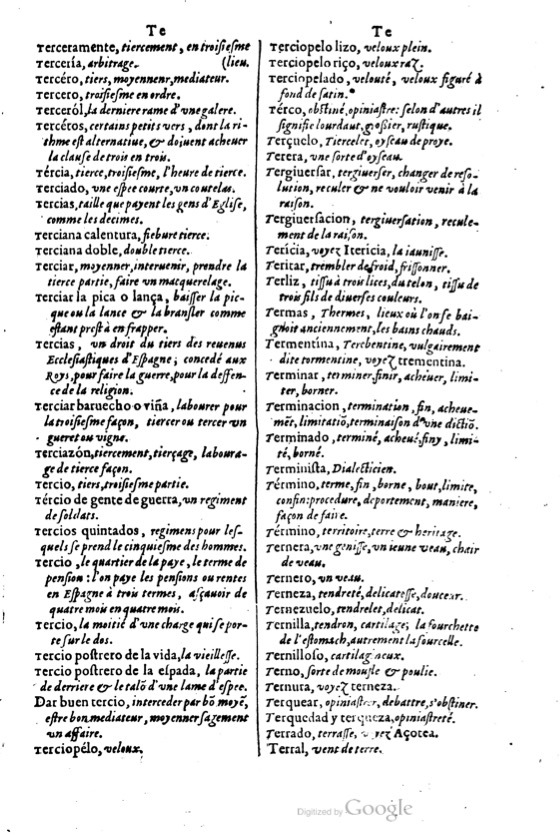 Te
Terceramente, tiercement, en troisiesme
Tercería, arbitrage. (lieu.
Tercéro, tiers, moyennenr, mediateur.
Tercero, troisiesme en ordre.
Terceról, la derniere rame d'vne galere.
Tercéros, certains petits vers, dont la ri-
thme est alternatiue, & doiuent acheuer
la clause de trois en trois.
Tércia, tierce, troisiesme, l'heure de tierce.
Terciado, vne espee courte, vn coutelas.
Tercias, taille que payent les gens d'Eglise,
comme les decimes.
Terciana calentura, fiebure tierce.
Terciana doble, double tierce.
Terciar, moyenner, interuenir, prendre la
tierce partie, faire vn macquerelage.
Terciar la pica o lança, baisser la pic-
que ou la lance & la bransler comme
estant prest à en frapper.
Tercias, vn droit du tiers des reuenus
Ecclesiastiques d'Espagne; concedé aux
Roys, pour faire la guerre, pour la deffen-
ce de la religion.
Terciar baruecho o viña, labourer pour
la troisiesme façon, tiercer ou tercer vn
gueret ou vigne.
Terciazón, tiercement, tierçage, laboura-
ge de tierce façon.
Tercio, tiers, troisiesme partie.
Tércio de gente de guerra, vn regiment
de soldats.
Tercios quintados, regimens pour les-
quels se prend le cinquiesme des hommes.
Tercio, le quartier de la paye, le terme de
pension: l'on paye les pensions ou rentes
en Espagne à trois termes, asçauoir de
quatre mois en quatre mois.
Tercio, la moitié d'une charge qui se por-
te sur le dos.
Tercio postrero de la vida, la vieillesse.
Tercio postrero de la espada, la partie
de derriere & le talõ d'vne lame d'espee.
Dar buen tercio, interceder par bõ moyẽ,
estre bon mediateur, moyenner sagement
vn affaire.
Terciopélo, veloux.
Te
Terciopelo lizo, veloux plein.
Terciopelo riço, veloux raz.
Terciopelado, velouté, veloux figuré à
fond de satin.
Térco, obstiné, opiniastre: selon d'autres il
signifie lourdaut, grossier, rustique.
Terçuelo, Tiercelet, oyseau de proye.
Terera, vne sorte d'oyseau.
Tergiuersar, tergiuerser, changer de reso-
lution, reculer & ne vouloir venir à la
raison.
Tergiuersacion, tergiuersation, recule-
ment de la raison.
Terícia, voyez Itericia, la iaunisse.
Teritar, trembler de froid, frissonner.
Terliz, tissu à trois lices, du telon, tissu de
trois fils de diuerses couleurs.
Termas, Thermes, lieux où l'on se bai-
gnoit anciennement, les bains chauds.
Termentina, Terebentine, vulgairement
dite tormentine, voyez trementina.
Terminar, terminer, finir, acheuer, limi-
ter, borner.
Terminacion, termination, fin, acheue-
mẽt, limitatiõ, terminaison d'vne dictiõ.
Terminado, terminé, acheué, finy, limi-
té, borné.
Terminista, Dialecticien.
Término, terme, fin, borne, bout, limite,
confin: procedure, deportement, maniere,
façon de faire.
Término, territoire, terre & heritage.
Ternera, vne genisse, vn ieune veau, chair
de veau.
Ternero, vn veau.
Terneza, tendreté, delicatesse, douceur.
Ternezuelo, tendrelet, delicat.
Ternilla, tendron, cartilage; la fourchette
de l'estomach, autrement la fourcelle.
Ternilloso, cartilagineux.
Terno, sorte de moufle & poulie.
Ternura, voyez terneza.
Terquear, opiniastrer, debattre, s'obstiner.
Terquedad y terqueza, opiniastreté.
Terrado, terrasse, voyez Açotea.
Terral, vent de terre.
Digitized by Google